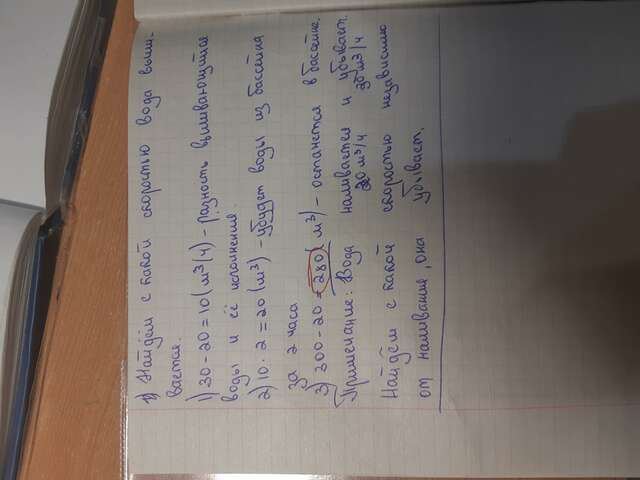 1) Найдём с какой скоростью вода выли-
вается.
1) 30-20=10(м³/ч) - разность выливающейся
воды и её наполнения.
2) 10·2=20(м³) - убудет воды из бассейна
за 2 часа
3) 300-20=280(м³) - останется в бассейне.
Примечание: Вода наливается и убывает.
20 м³/ч 30 м³/ч
Найдём с какой скоростью независимо
от наливания, она убывает.